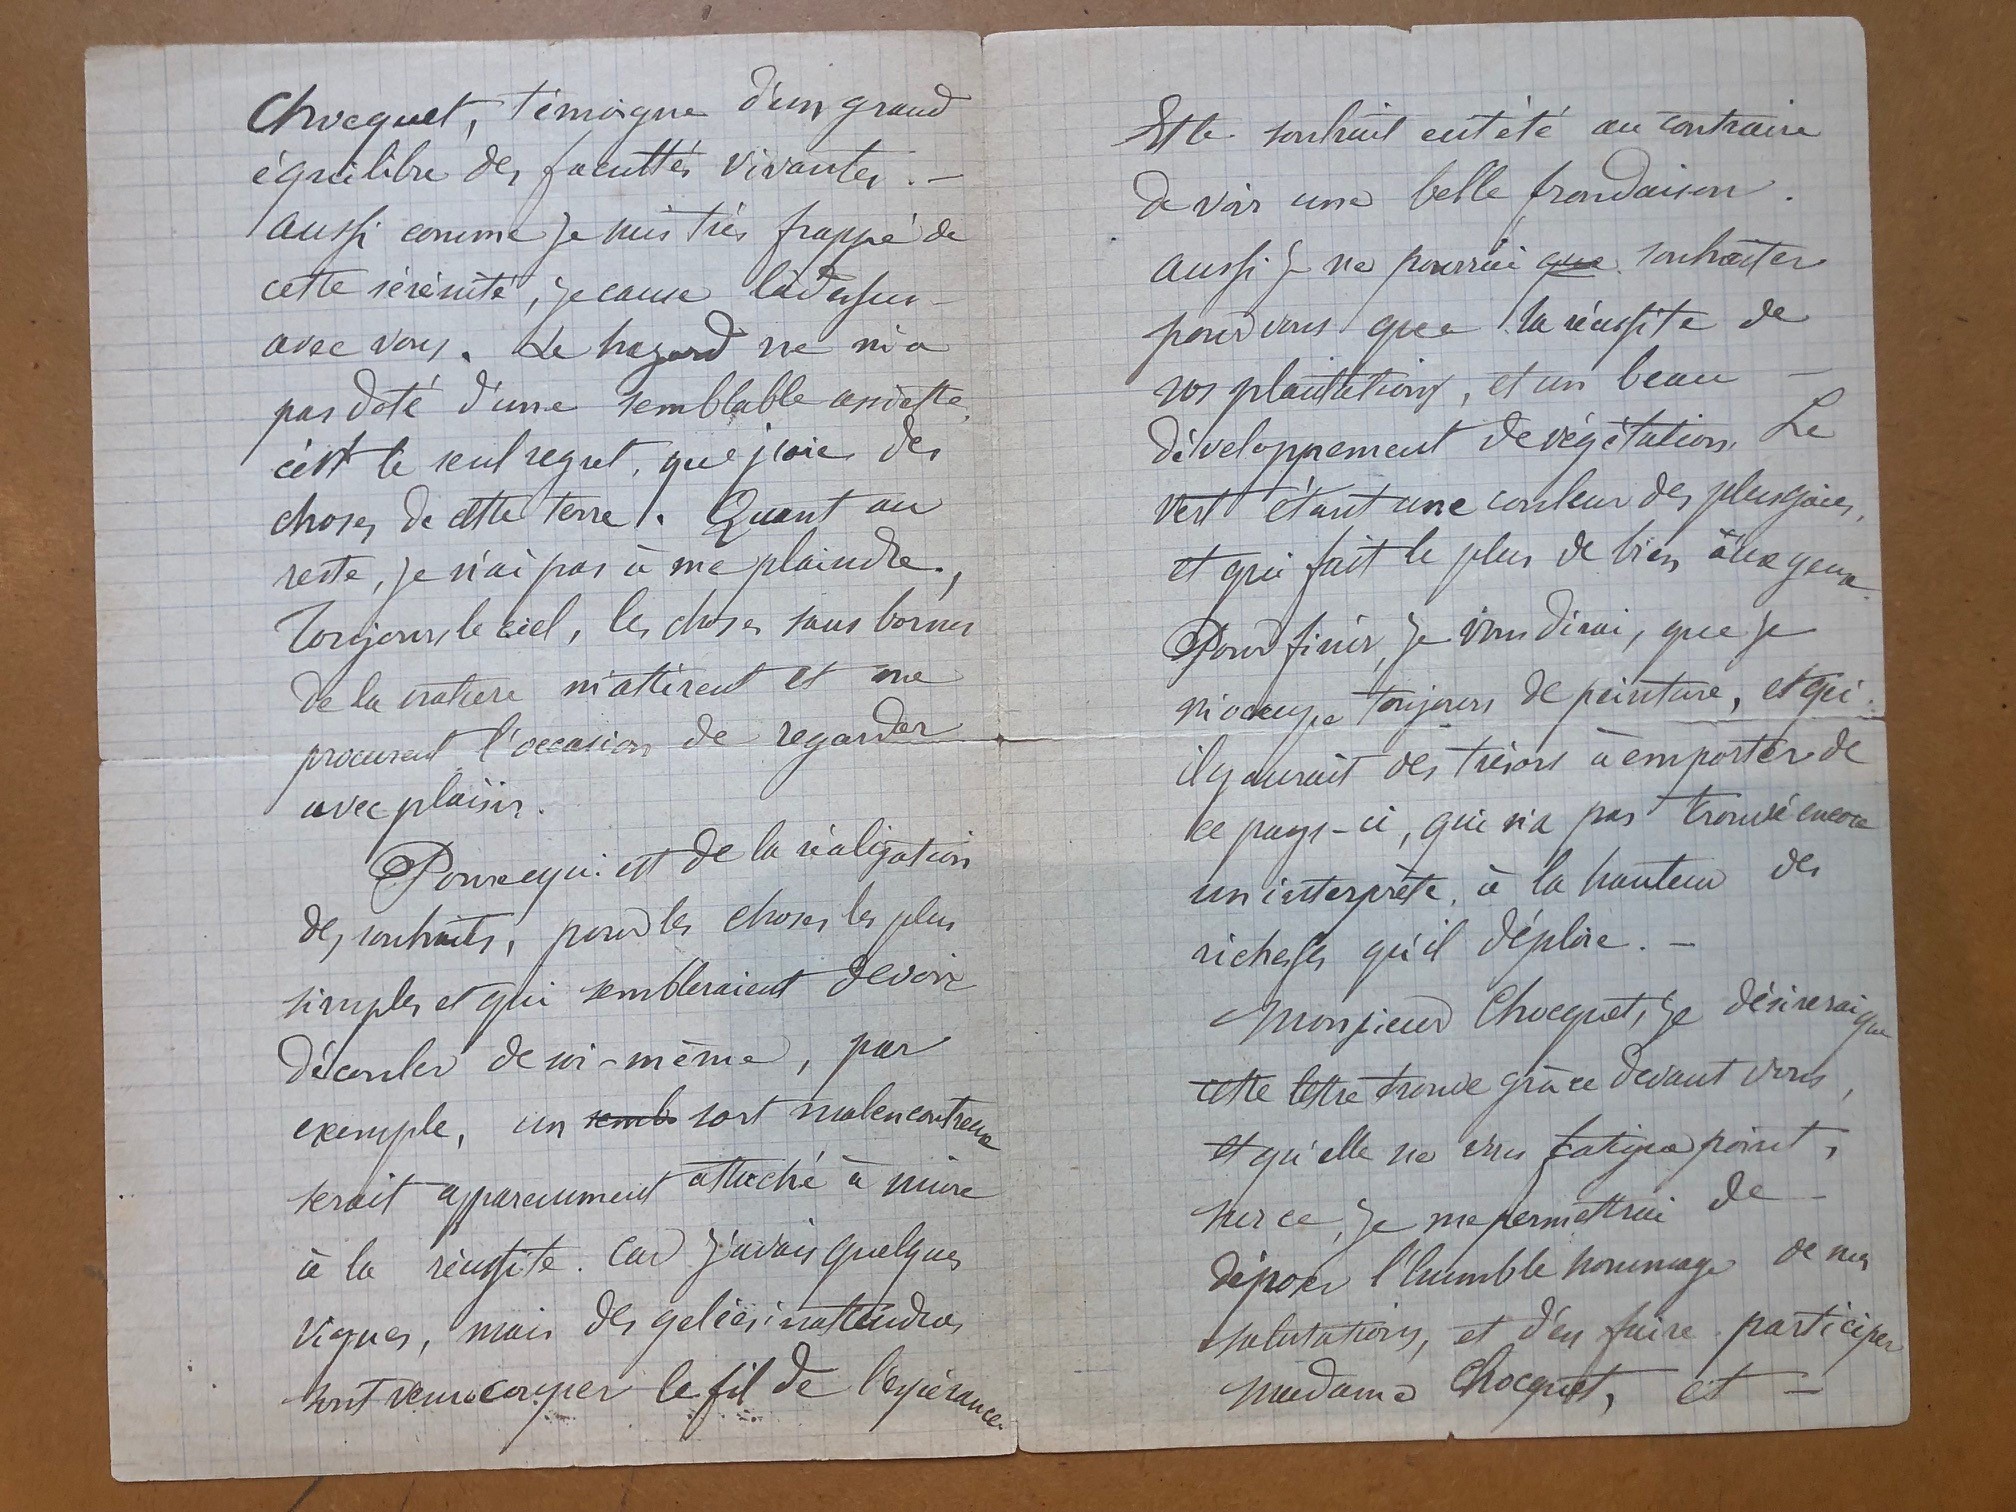 Chocquet, témoigne d'un grand
équilibre des facultés vivantes. —
aussi comme je suis très frappé de
cette sérénité, je cause là dessus —
avec vous. Le hazard ne m'a
pas doté d'une semblable assiette,
c'est le seul regret que j'aie des
choses de cette terre. Quant au
reste, je n'ai pas à me plaindre.,
Toujours le ciel, les choses sans bornes
de la nature m'attirent et me
procurent l'occasion de regarder
avec plaisir.
Pour ce qui est de la réalisation
des souhaits, pour les choses les plus
simples et qui sembleraient devoir
découler de soi-même, par
exemple, un semb sort malencontreux
serait apparemment attaché à nuire
à la réussite. Car j'avais quelques
vignes, mais des gelées inattendues
sont venu couper le fil de l'espérance.
Et le souhait eut été au contraire
de voir une belle frondaison.
aussi je ne pourrai que souhaiter
pour vous que la réussite de
vos plantations, et un beau —
développement de végétation, Le
vert étant une couleur des plus gaies,
et qui fait le plus de bien aux yeux.
Pour finir, je vous dirai, que je
m'occupe toujours de peinture, et qu'i
il y aurait des trésors à emporter de
ce pays-ci, qui n'a pas trouvé encore
un interprète, à la hauteur des
richesses qu'il déploie. —
Monsieur Chocquet, je désirerai que
cette lettre trouve grâce devant vous,
et qu'elle ne vous fatigue point,
sur ce, je me permettrai de —
déposer l'humble hommage de mes
salutations, et d'en faire participer
madame Chocquet, et —